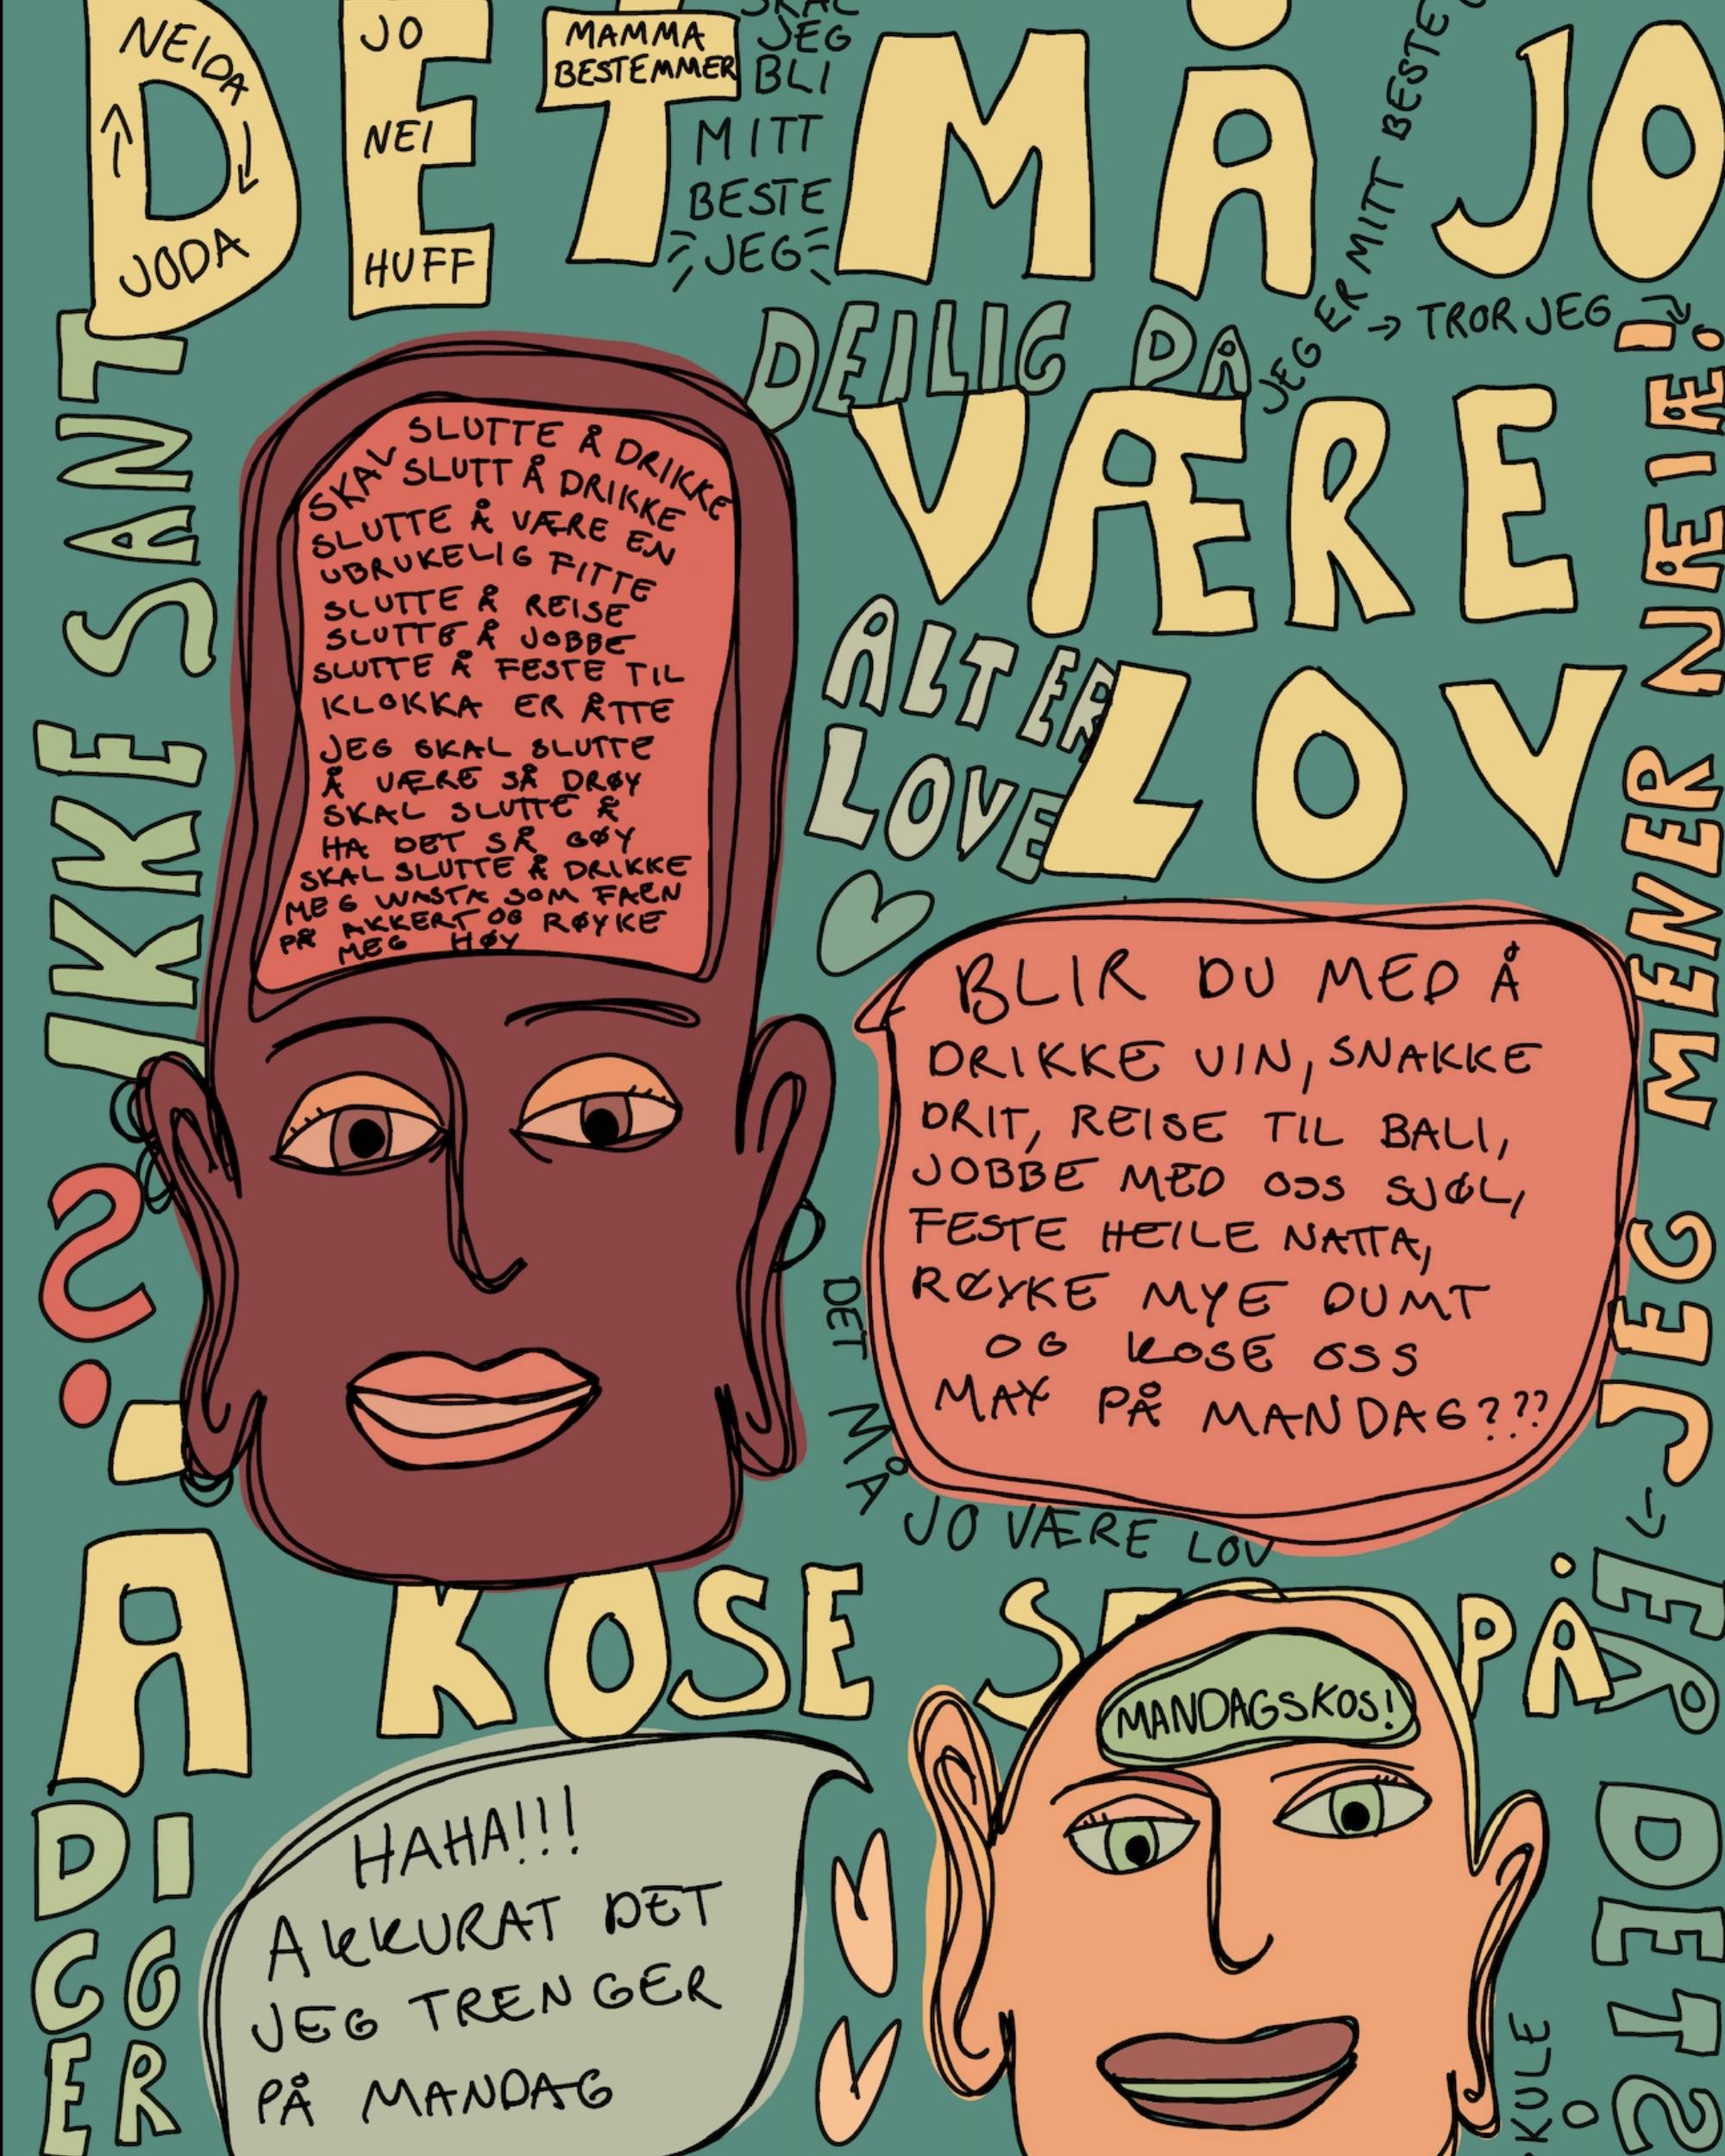 DET MÅ JO
NEIDA
JODA
JO
NEI
HUFF
MAMMA
BESTEMMER
SKAL
JEG
BLI
MITT
BESTE
JEG
JEG ER MITT BESTE
→ TROR JEG
DEILIG DA
VÆRE
ALT ER
LOVE
LOV
IKKE SANT
?
JEG MENER NÆIÆ!
SKAL SLUTTE Å DRIKKE
SLUTT Å DRIKKE
SLUTTE Å VÆRE EN
UBRUKELIG FITTE
SLUTTE Å REISE
SLUTTE Å JOBBE
SLUTTE Å FESTE TIL
KLOKKA ER ÅTTE
JEG SKAL SLUTTE
Å VÆRE SÅ DRØY
SKAL SLUTTE Å
HA DET SÅ GØY
SKAL SLUTTE Å DRIKKE
MEG WASTA SOM FAEN
PÅ AKKERT OG RØYKE
MEG HØY
BLIR DU MED Å
DRIKKE VIN, SNAKKE
DRIT, REISE TIL BALI,
JOBBE MED OSS SJØL,
FESTE HEILE NATTA,
RØYKE MYE DUMT
OG KOSE OSS
MAX PÅ MANDAG???
DET MÅ JO VÆRE LOV
Å KOSE SE PÅ
MANDAGSKOS!
HAHA!!!
AKKURAT DET
JEG TRENGER
PÅ MANDAG
DIGGER
ER DET
KULE